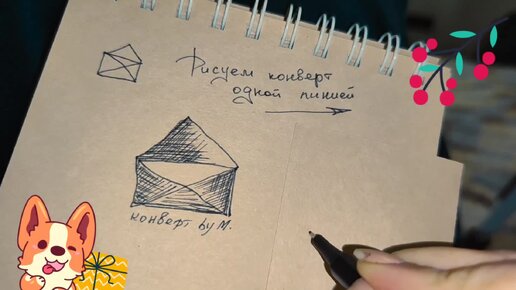 Рисуем конверт
одной линией
конверт by М.